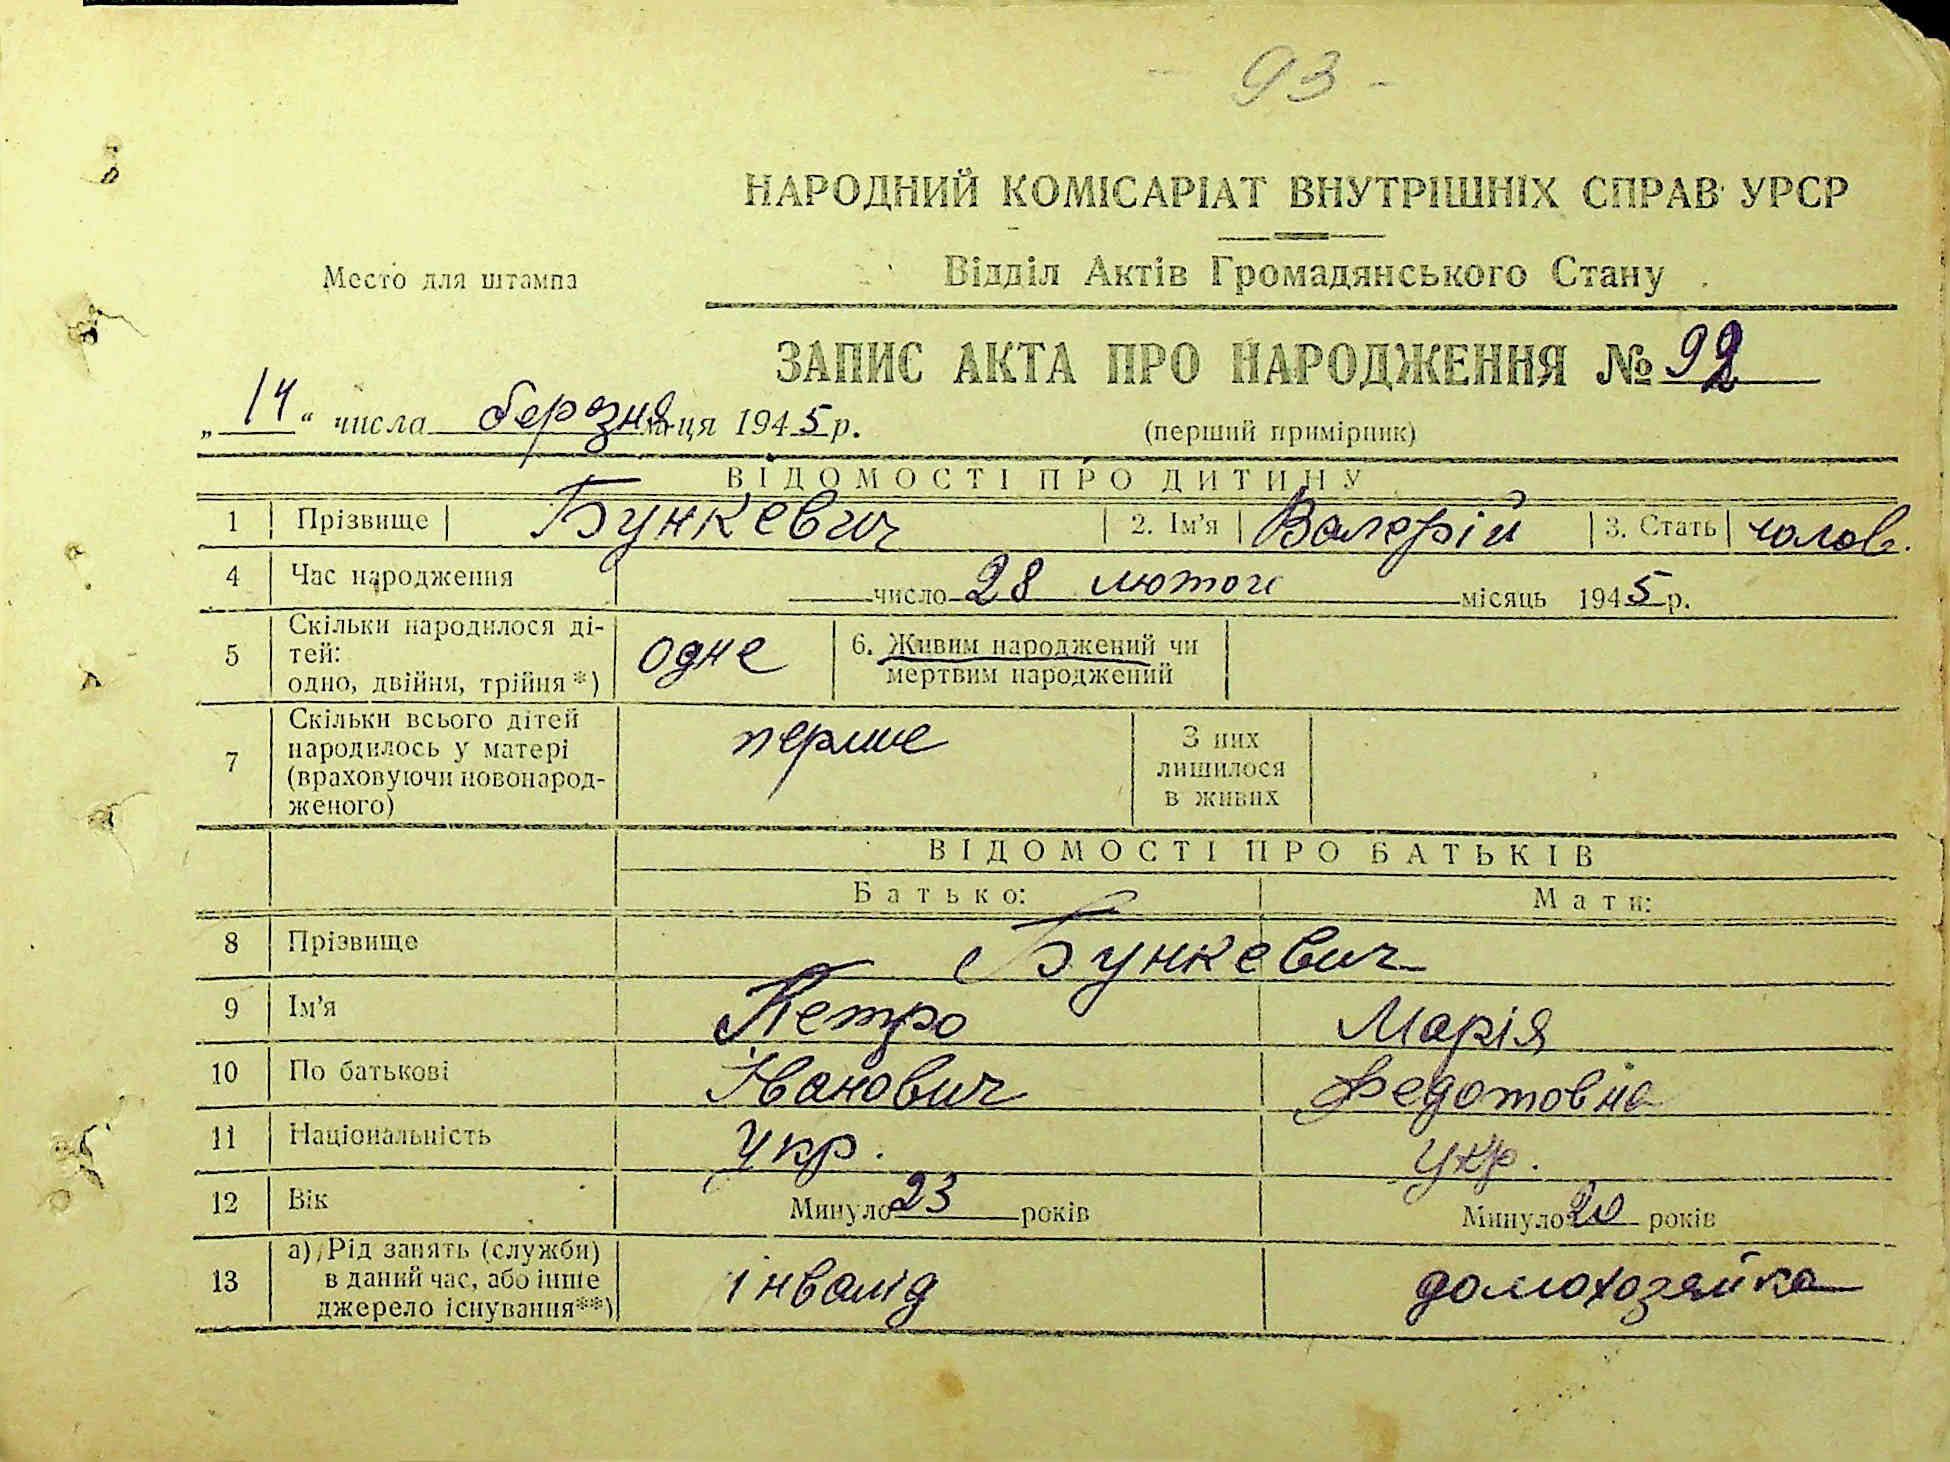 - 93 -
НАРОДНИЙ КОМІСАРІАТ ВНУТРІШНІХ СПРАВ УРСР
Место для штампа
Відділ Актів Громадянського Стану
ЗАПИС АКТА ПРО НАРОДЖЕННЯ № 92
„14“ числа березня м-ця 1945 р.
(перший примірник)
ВІДОМОСТІ ПРО ДИТИНУ
1 Прізвище Бункевич 2. Ім'я Валерій 3. Стать чолов.
4 Час народження число 28 лютого місяць 1945 р.
5 Скільки народилося ді-
тей:
одно, двійня, трійня *) одне 6. Живим народжений чи
мертвим народжений
7 Скільки всього дітей
народилось у матері
(враховуючи новонарод-
женого) перше З них
лишилося
в живих
ВІДОМОСТІ ПРО БАТЬКІВ
Батько: Мати:
8 Прізвище Бункевич
9 Ім'я Петро Марія
10 По батькові Іванович Федотовна
11 Національність Укр. Укр.
12 Вік Минуло 23 років Минуло 20 років
13 а) Рід занять (служби)
в даний час, або інше
джерело існування**) інвалід домохозяйка